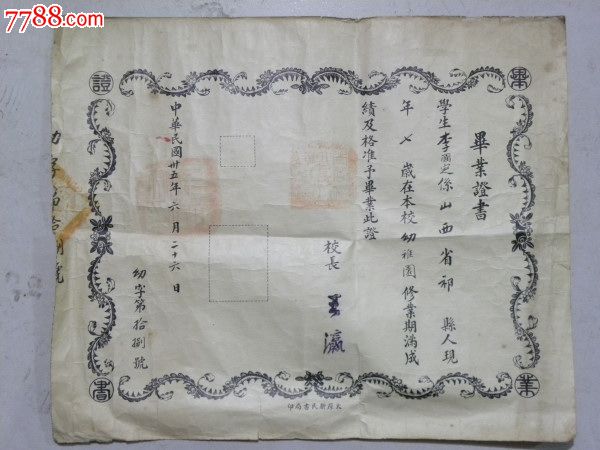 7788.com
畢業證書
畢業證書
學生李國定係山西省祁縣人現
年七歲在本校幼稚園修業期滿成
績及格准予畢業此證
校長
瀛
中華民國卅五年六月二十六日
幼字第拾捌號
幼字第拾捌號
太原新民書局印